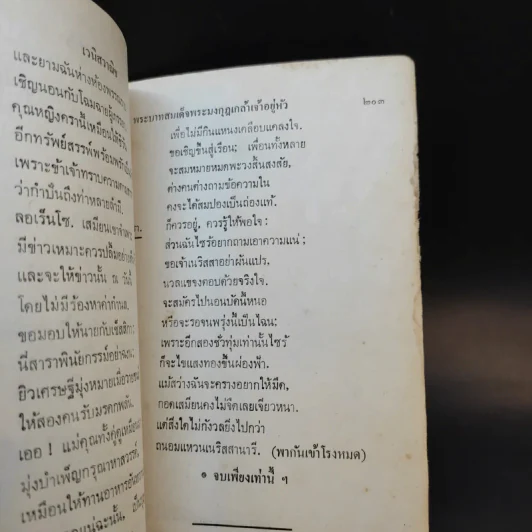 เวนิสวาณิช
และยามฉันห่างห้อง
เชิญนอนกับโฉมฉาย
คุณหญิงครานี้เหมือนให้
อีกทรัพย์สรรพ์พร้อม
เพราะข้าเจ้าทราบความ
ว่ากำปั่นถึงท่าหลายลำมี
ลอเร็นโซ. เสมียนเขา
มีข่าวเหมาะควรปลื้ม
และจะให้ข่าวนั้น ณ
โดยไม่มีร้องหาค่ากำนล
ขอมอบให้นายกับเช็สสิกา
นี่สาราพินัยกรรม์
ยิวเศรษฐีมุ่งหมายเมื่อ
ให้สองคนรับมรดกพลัน
เออ ! แม่คุณทั้งคู่ดูเหมือน
มุ่งบำเพ็ญกรุณา
เหมือนให้ทานอาหาร
พระบาทสมเด็จพระมงกุฎเกล้าเจ้าอยู่หัว ๒๐๓
เพื่อไม่มีกินแหนงเคลือบแคลงใจ.
ขอเชิญขึ้นสู่เรือน; เพื่อนทั้งหลาย
จะสมหมายหมดพะวงสิ้นสงสัย,
ต่างคนต่างถามข้อความใน
คงจะได้สมปองเป็นถ่องแท้.
ก็ควรอยู่, ควรรู้ให้พอใจ;
ส่วนฉันไซร้อยากถามเอาความแน่;
ขอเจ้าเนริสสาอย่าผันแปร,
นวลแขจงตอบด้วยจริงใจ.
จะสมัครไปนอนบัดนี้หนอ
หรือจะรอจนพรุ่งนี้เป็นไฉน;
เพราะอีกสองชั่วทุ่มเท่านั้นไซร้
ก็จะไขแสงทองขึ้นผ่องฟ้า.
แม้สว่างฉันจะครางอยากให้มืด,
กอดเสมียนคงไม่จืดเลยเจียวหนา.
แต่สิ่งใดไม่กังวลยิ่งไปกว่า
ถนอมแหวนเนริสสานารี. (พากันเข้าโรงหมด)
๑ จบเพียงเท่านี้ ๆ